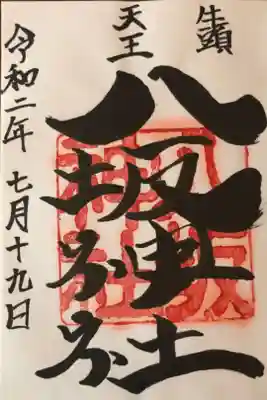 牛頭
天王
八坂神社
令和二年 七月十九日